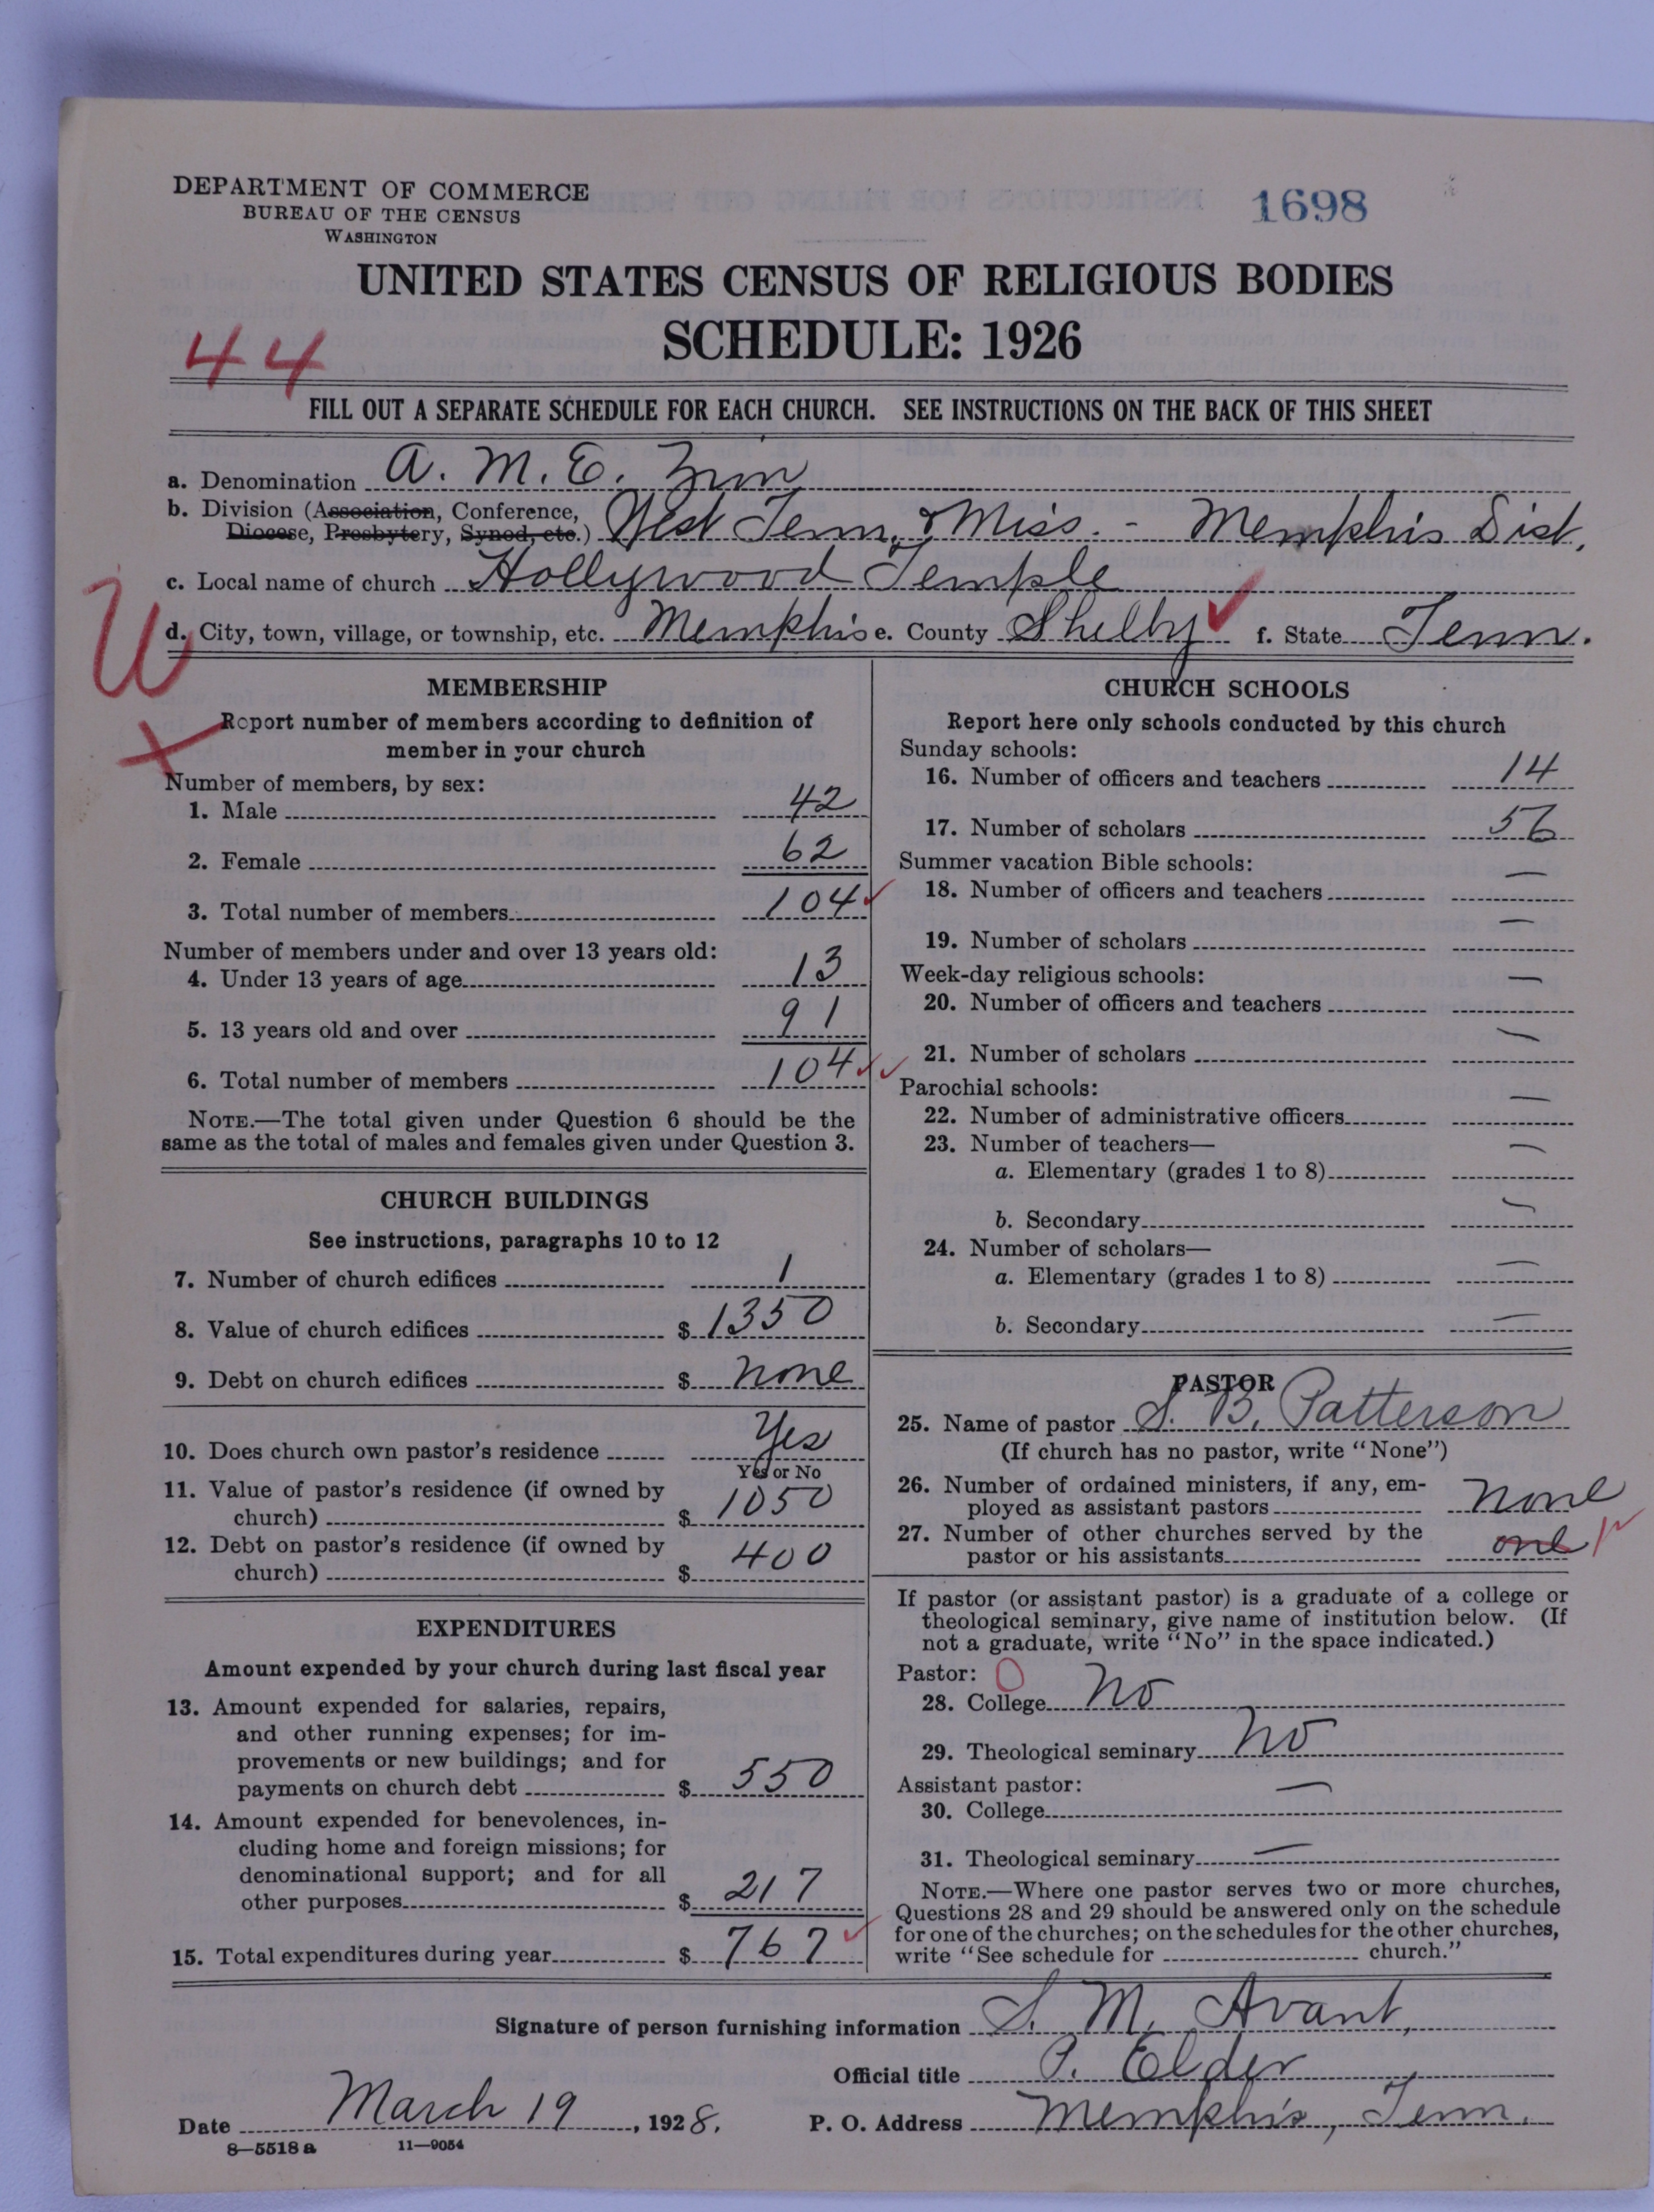 DEPARTMENT OF COMMERCE
BUREAU OF THE CENSUS
WASHINGTON
1698
UNITED STATES CENSUS OF RELIGIOUS BODIES
SCHEDULE: 1926
44
FILL OUT A SEPARATE SCHEDULE FOR EACH CHURCH. SEE INSTRUCTIONS ON THE BACK OF THIS SHEET
a. Denomination A. M. E. Zion
b. Division (Association, Conference,
Diocese, Presbytery, Synod, etc.) West Tenn. & Miss. - Memphis Dist.
c. Local name of church Hollywood Temple
d. City, town, village, or township, etc. Memphis e. County Shelby f. State Tenn.
U
X
MEMBERSHIP
Report number of members according to definition of
member in your church
Number of members, by sex:
1. Male 42
2. Female 62
3. Total number of members 104
Number of members under and over 13 years old:
4. Under 13 years of age 13
5. 13 years old and over 91
6. Total number of members 104
NOTE.—The total given under Question 6 should be the
same as the total of males and females given under Question 3.
CHURCH BUILDINGS
See instructions, paragraphs 10 to 12
7. Number of church edifices 1
8. Value of church edifices $ 1350
9. Debt on church edifices $ none
10. Does church own pastor's residence Yes
Yes or No
11. Value of pastor's residence (if owned by
church) $ 1050
12. Debt on pastor's residence (if owned by
church) $ 400
EXPENDITURES
Amount expended by your church during last fiscal year
13. Amount expended for salaries, repairs,
and other running expenses; for im-
provements or new buildings; and for
payments on church debt $ 550
14. Amount expended for benevolences, in-
cluding home and foreign missions; for
denominational support; and for all
other purposes $ 217
15. Total expenditures during year $ 767
CHURCH SCHOOLS
Report here only schools conducted by this church
Sunday schools:
16. Number of officers and teachers 14
17. Number of scholars 56
Summer vacation Bible schools:
18. Number of officers and teachers —
19. Number of scholars —
Week-day religious schools:
20. Number of officers and teachers —
21. Number of scholars —
Parochial schools:
22. Number of administrative officers —
23. Number of teachers—
a. Elementary (grades 1 to 8) —
b. Secondary —
24. Number of scholars—
a. Elementary (grades 1 to 8) —
b. Secondary —
PASTOR
25. Name of pastor S. B. Patterson
(If church has no pastor, write "None")
26. Number of ordained ministers, if any, em-
ployed as assistant pastors none
27. Number of other churches served by the
pastor or his assistants one 1
If pastor (or assistant pastor) is a graduate of a college or
theological seminary, give name of institution below. (If
not a graduate, write "No" in the space indicated.)
Pastor: 0
28. College No
29. Theological seminary No
Assistant pastor:
30. College —
31. Theological seminary —
NOTE.—Where one pastor serves two or more churches,
Questions 28 and 29 should be answered only on the schedule
for one of the churches; on the schedules for the other churches,
write "See schedule for church."
Signature of person furnishing information S. M. Avant,
Official title P. Elder
Date March 19, 1928. P. O. Address Memphis, Tenn.
8—5518 a 11—9054